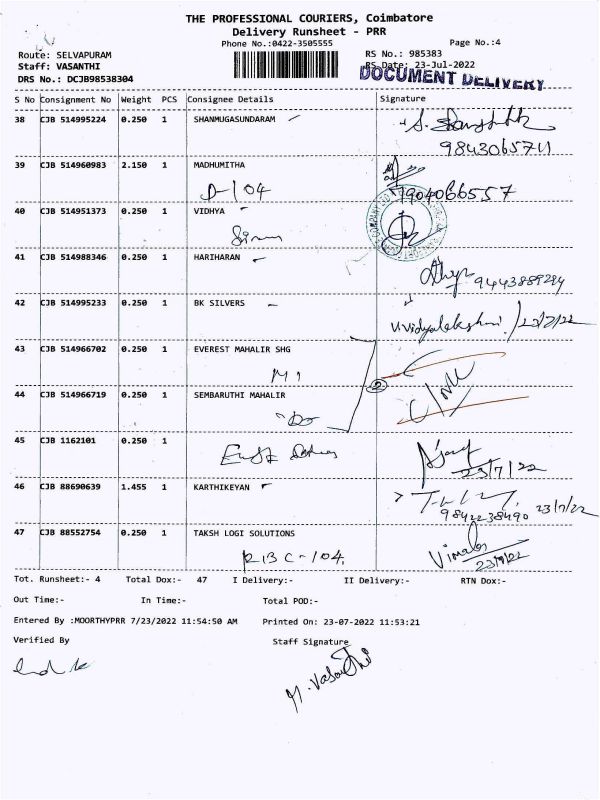 THE PROFESSIONAL COURIERS, Coimbatore
Delivery Runsheet - PRR
Phone No.:0422-3505555
Page No.:4
Route: SELVAPURAM
RS No.: 985383
Staff: VASANTHI
RS Date: 23-Jul-2022
DRS No.: DCJB98538304
DOCUMENT DELIVERY
S No Consignment No Weight PCS Consignee Details Signature
38 CJB 514995224 0.250 1 SHANMUGASUNDARAM
9843065711
39 CJB 514960983 2.150 1 MADHUMITHA
D-104 7904066557
40 CJB 514951373 0.250 1 VIDHYA
41 CJB 514988346 0.250 1 HARIHARAN
9443889294
42 CJB 514995233 0.250 1 BK SILVERS
V.vidyalekshmi / 23/7/22
43 CJB 514966702 0.250 1 EVEREST MAHALIR SHG
44 CJB 514966719 0.250 1 SEMBARUTHI MAHALIR
45 CJB 1162101 0.250 1
23/7/22
46 CJB 88690639 1.455 1 KARTHIKEYAN
9842238490 23/7/22
47 CJB 88552754 0.250 1 TAKSH LOGI SOLUTIONS
RBC-104. Vimala
23/7/22
Tot. Runsheet:- 4 Total Dox:- 47 I Delivery:- II Delivery:- RTN Dox:-
Out Time:- In Time:- Total POD:-
Entered By :MOORTHYPRR 7/23/2022 11:54:50 AM Printed On: 23-07-2022 11:53:21
Verified By Staff Signature
M. Vasanthi